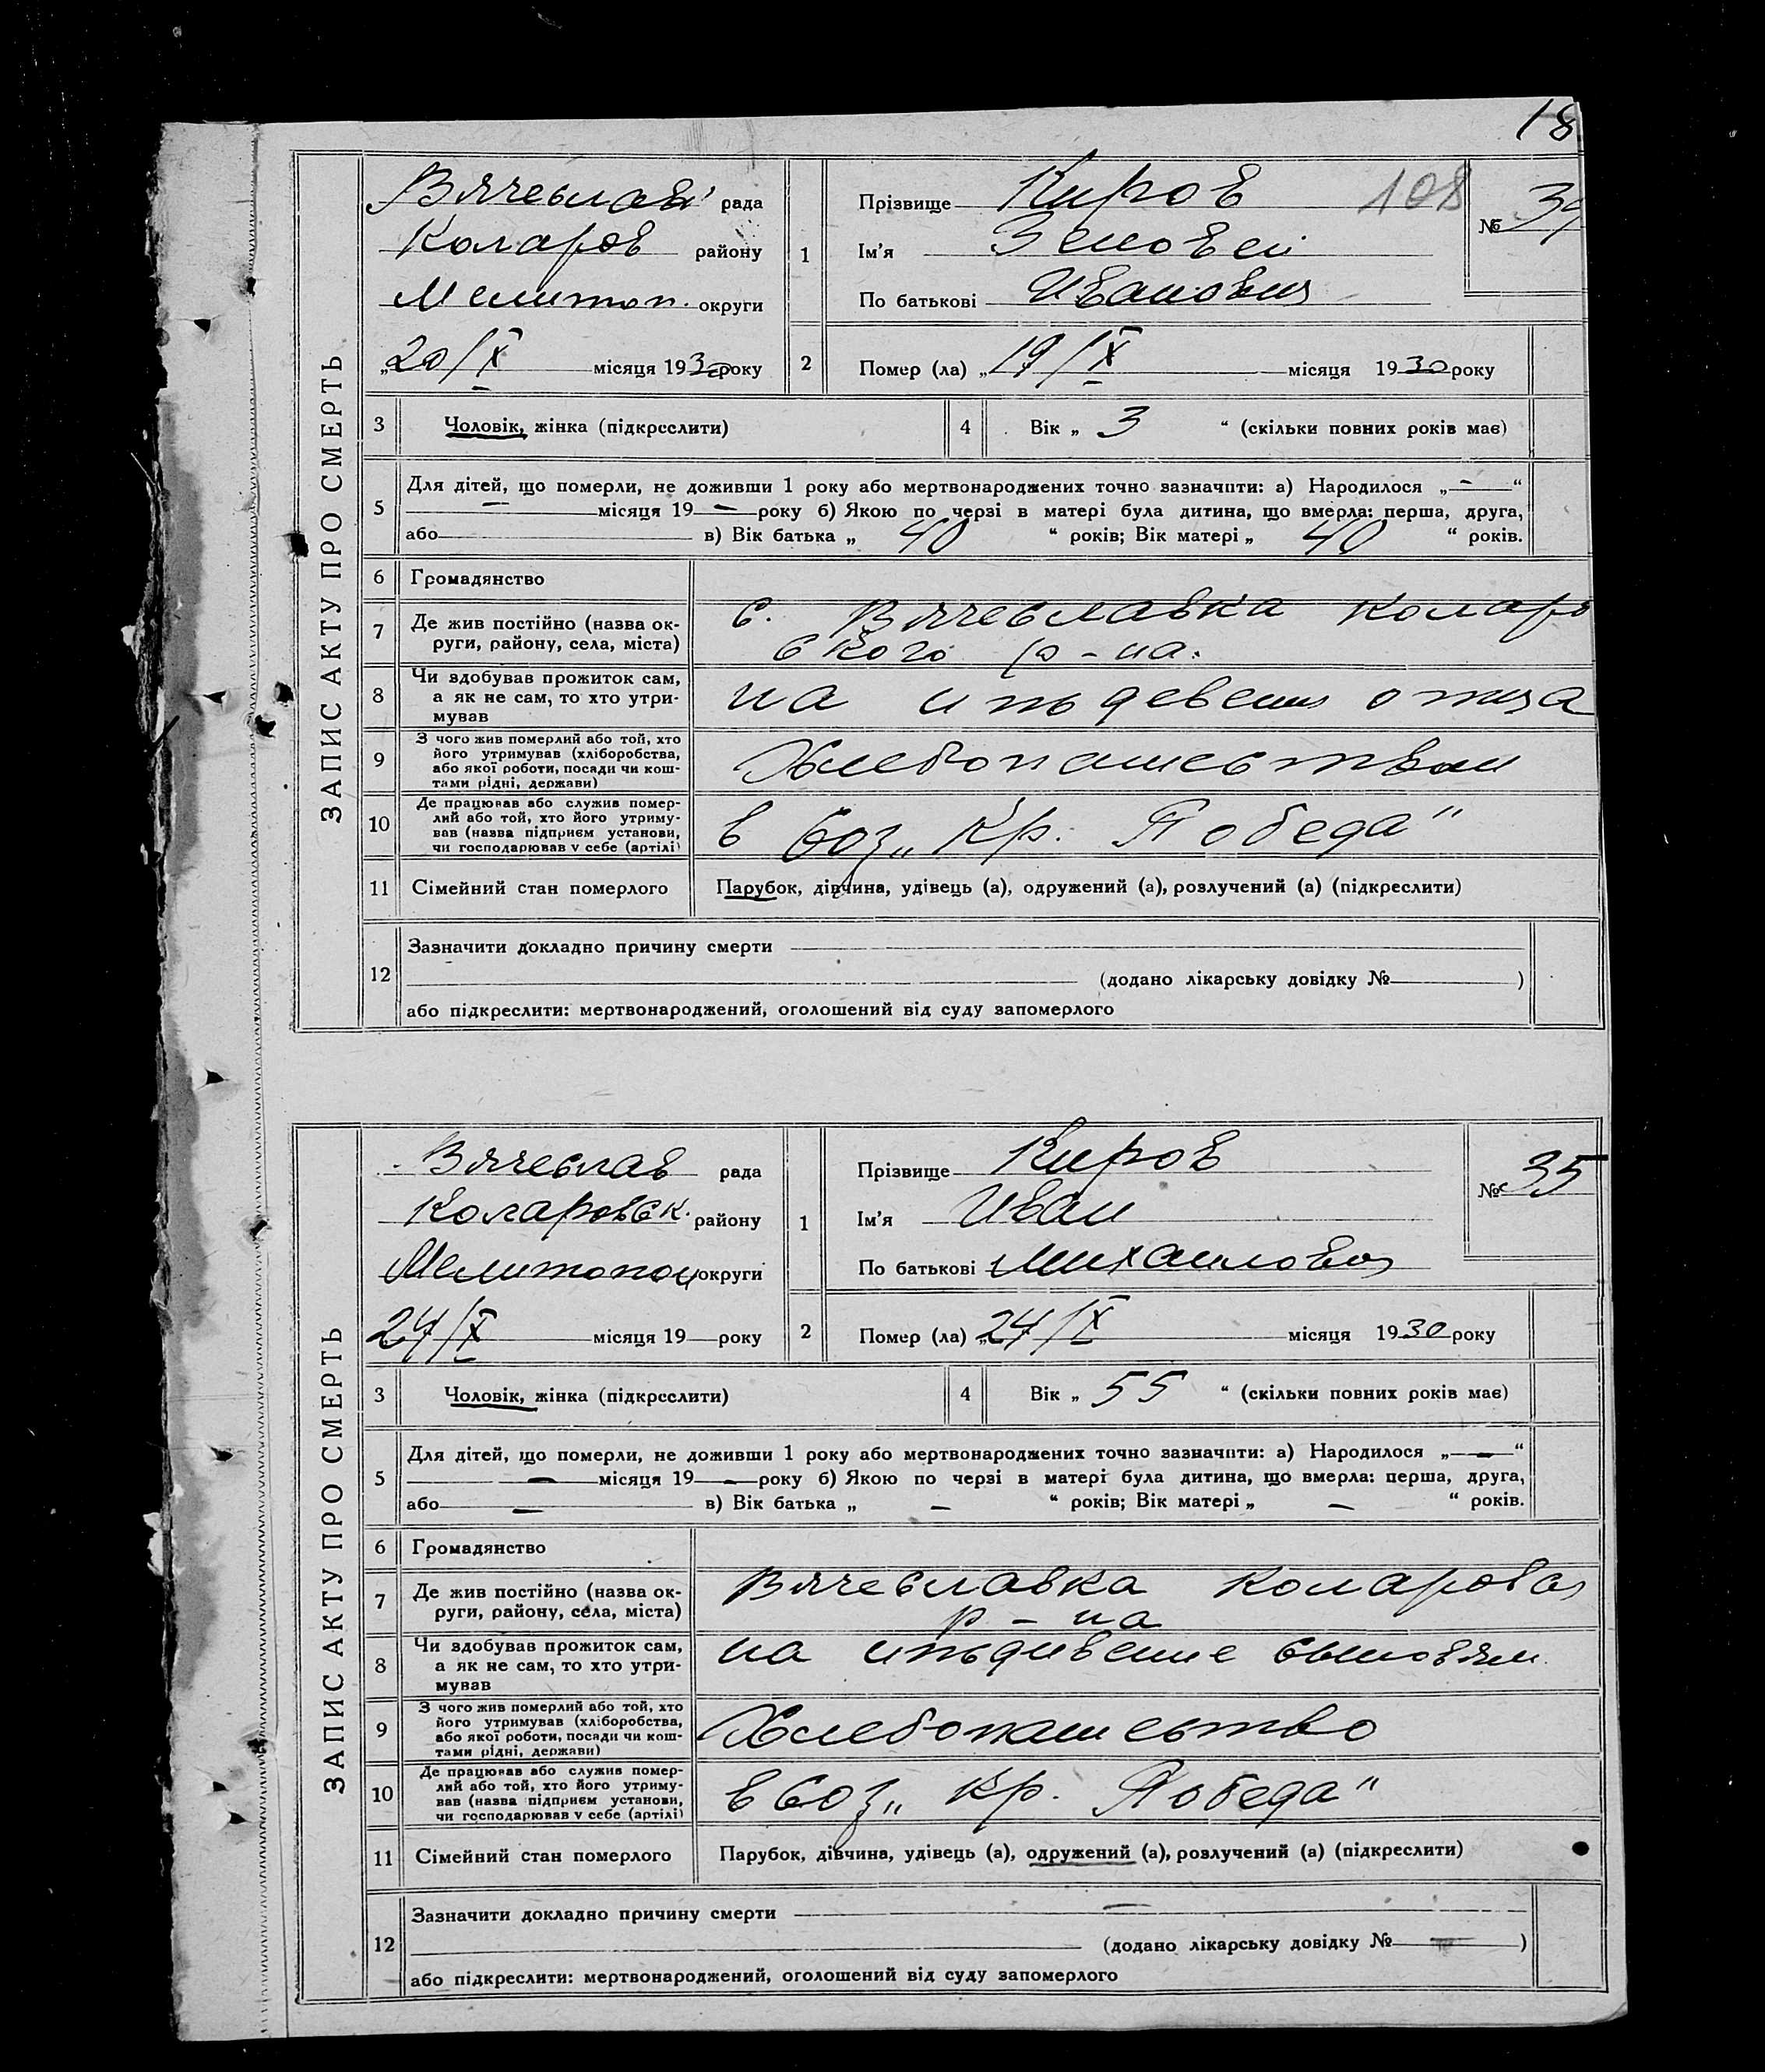 18
108
Вячеслав рада
Коларов району
Мелитоп. округи
„20/X місяця 1930 року
1
Прізвище Киров
Ім'я Зиновей
По батькові Иванович
№ 34
2
Помер (ла) „19/X місяця 1930 року
ЗАПИС АКТУ ПРО СМЕРТЬ
3 Чоловік, жінка (підкреслити)
4 Вік „ 3 “ (скільки повних років має)
5 Для дітей, що померли, не доживши 1 року або мертвонароджених точно зазначити: а) Народилося „—“
— місяця 19 — року б) Якою по черзі в матері була дитина, що вмерла: перша, друга,
або в) Вік батька „ 40 “ років; Вік матері „ 40 “ років.
6 Громадянство
7 Де жив постійно (назва ок-
руги, району, села, міста)
с. Вячеславка Коларо
вского р-на.
8 Чи здобував прожиток сам,
а як не сам, то хто утри-
мував
на иждевении отца
9 З чого жив померлий або той, хто
його утримував (хліборобства,
або якої роботи, посади чи кош-
тами рідні, держави)
Хлебопашеством
10 Де працював або служив помер-
лий або той, хто його утриму-
вав (назва підприєм установи,
чи господарював у себе (артілі)
в Соз „Кр. Победа“
11 Сімейний стан померлого
Парубок, дівчина, удівець (а), одружений (а), розлучений (а) (підкреслити)
12 Зазначити докладно причину смерти
(додано лікарську довідку № )
або підкреслити: мертвонароджений, оголошений від суду запомерлого
Вячеслав рада
Коларовск. району
Мелитопол округи
24/X місяця 19 — року
1
Прізвище Киров
Ім'я Иван
По батькові Михайлович
№ 35
2
Помер (ла) „24/X місяця 1930 року
ЗАПИС АКТУ ПРО СМЕРТЬ
3 Чоловік, жінка (підкреслити)
4 Вік „ 55 “ (скільки повних років має)
5 Для дітей, що померли, не доживши 1 року або мертвонароджених точно зазначити: а) Народилося „—“
— місяця 19 — року б) Якою по черзі в матері була дитина, що вмерла: перша, друга,
або — в) Вік батька „ — “ років; Вік матері „ — “ років.
6 Громадянство
7 Де жив постійно (назва ок-
руги, району, села, міста)
Вячеславка Коларовск
р-на
8 Чи здобував прожиток сам,
а як не сам, то хто утри-
мував
на иждивение сыновям
9 З чого жив померлий або той, хто
його утримував (хліборобства,
або якої роботи, посади чи кош-
тами рідні, держави)
Хлебопашество
10 Де працював або служив помер-
лий або той, хто його утриму-
вав (назва підприєм установи,
чи господарював у себе (артілі)
в Соз „Кр. Победа“
11 Сімейний стан померлого
Парубок, дівчина, удівець (а), одружений (а), розлучений (а) (підкреслити)
12 Зазначити докладно причину смерти —
(додано лікарську довідку № — )
або підкреслити: мертвонароджений, оголошений від суду запомерлого